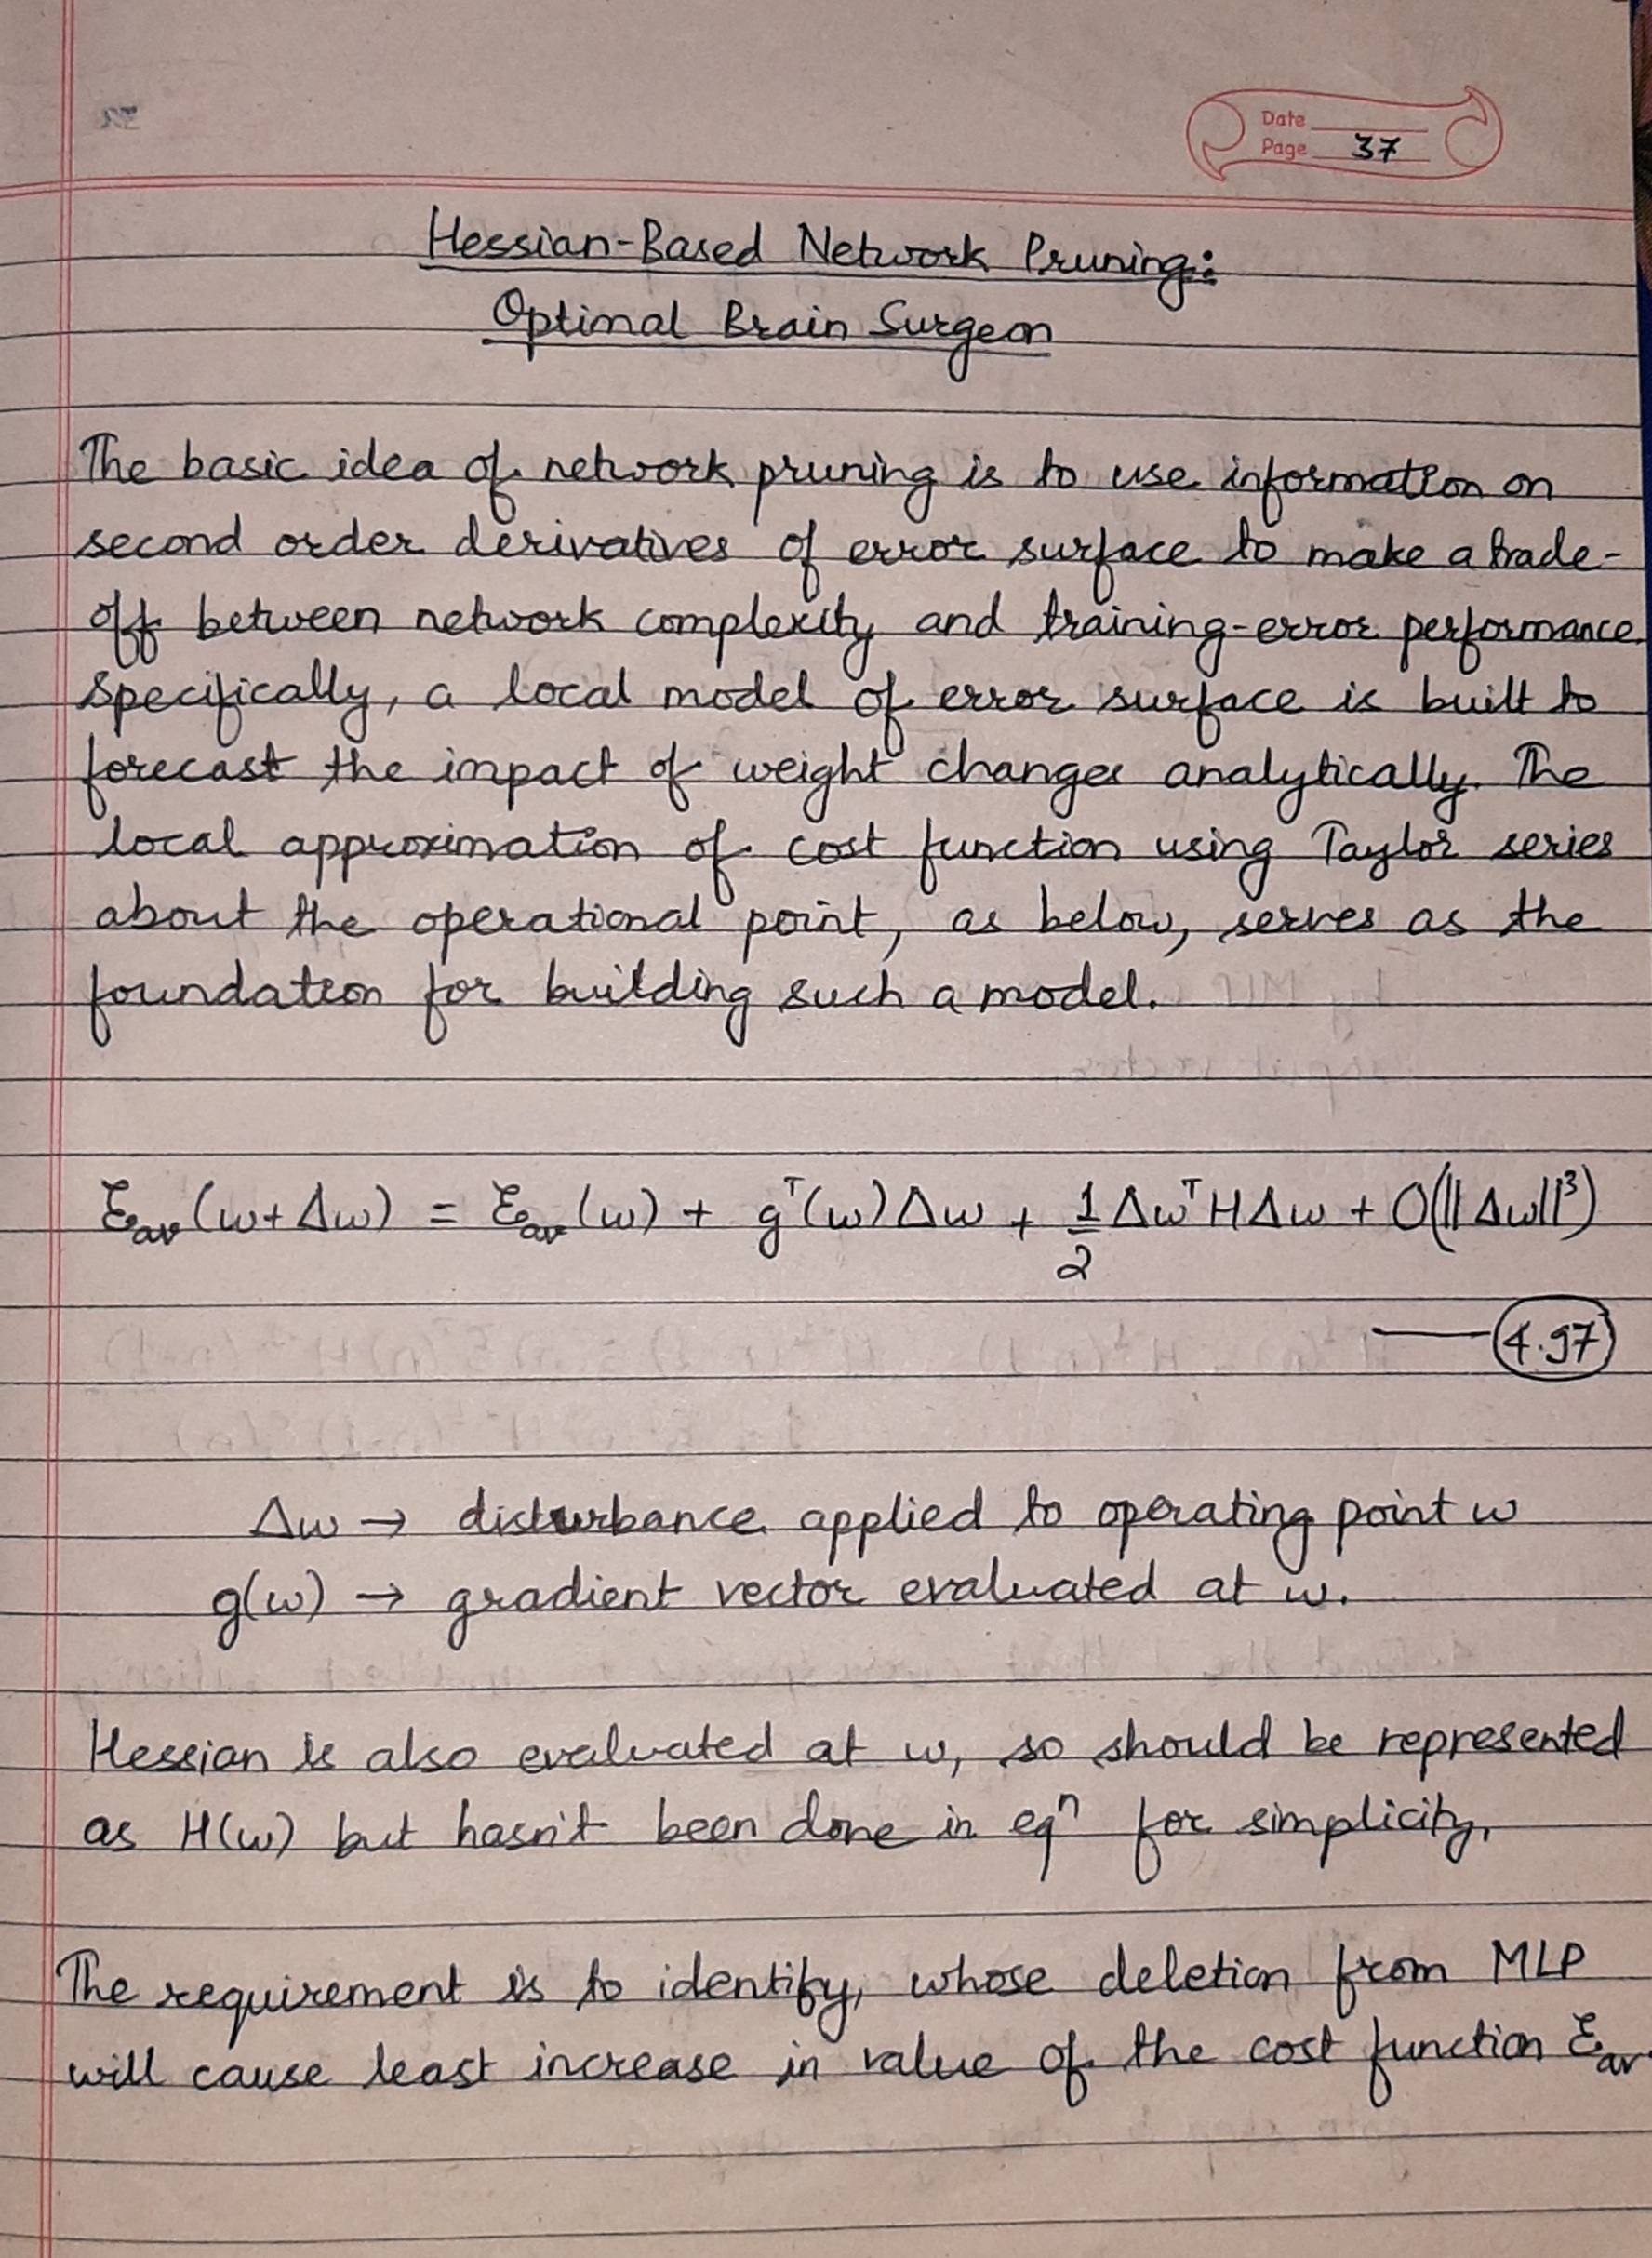 Date
Page 37
Hessian-Based Network Pruning:
Optimal Brain Surgeon
The basic idea of network pruning is to use information on
second order derivatives of error surface to make a trade-
off between network complexity and training-error performance.
Specifically, a local model of error surface is built to
forecast the impact of weight changes analytically. The
local approximation of cost function using Taylor series
about the operational point, as below, serves as the
foundation for building such a model.
ξav(w+Δw) = ξav(w) + gᵀ(w)Δw + 1/2 ΔwᵀHΔw + O(||Δw||³)
— 4.97
Δw → disturbance applied to operating point w
g(w) → gradient vector evaluated at w.
Hessian is also evaluated at w, so should be represented
as H(w) but hasn't been done in eqⁿ for simplicity.
The requirement is to identify, whose deletion from MLP
will cause least increase in value of the cost function ξav.